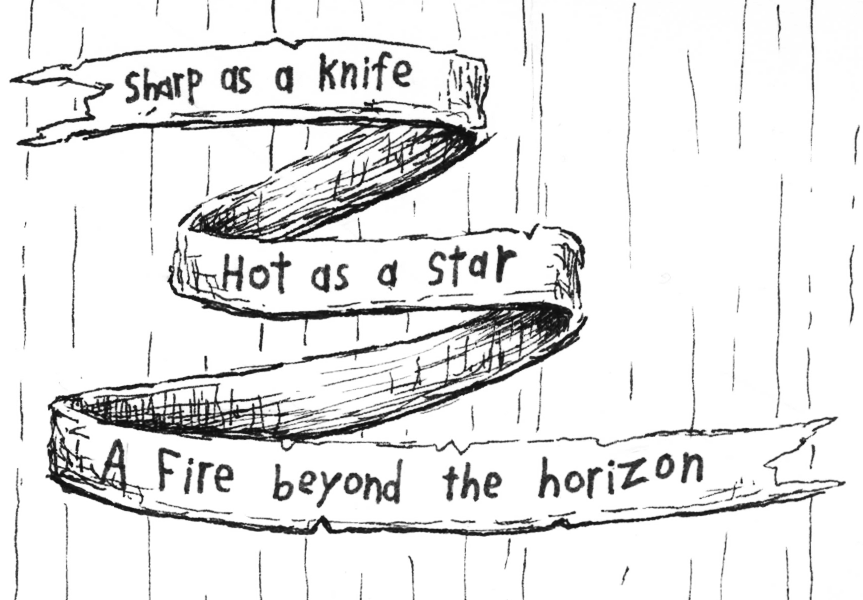 Sharp as a knife
Hot as a star
A Fire beyond the horizon